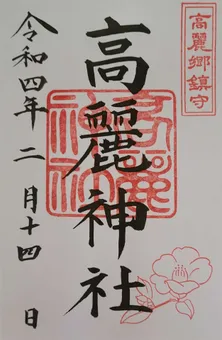 高麗郷鎮守
高麗神社
令和四年二月十四日
高麗神社